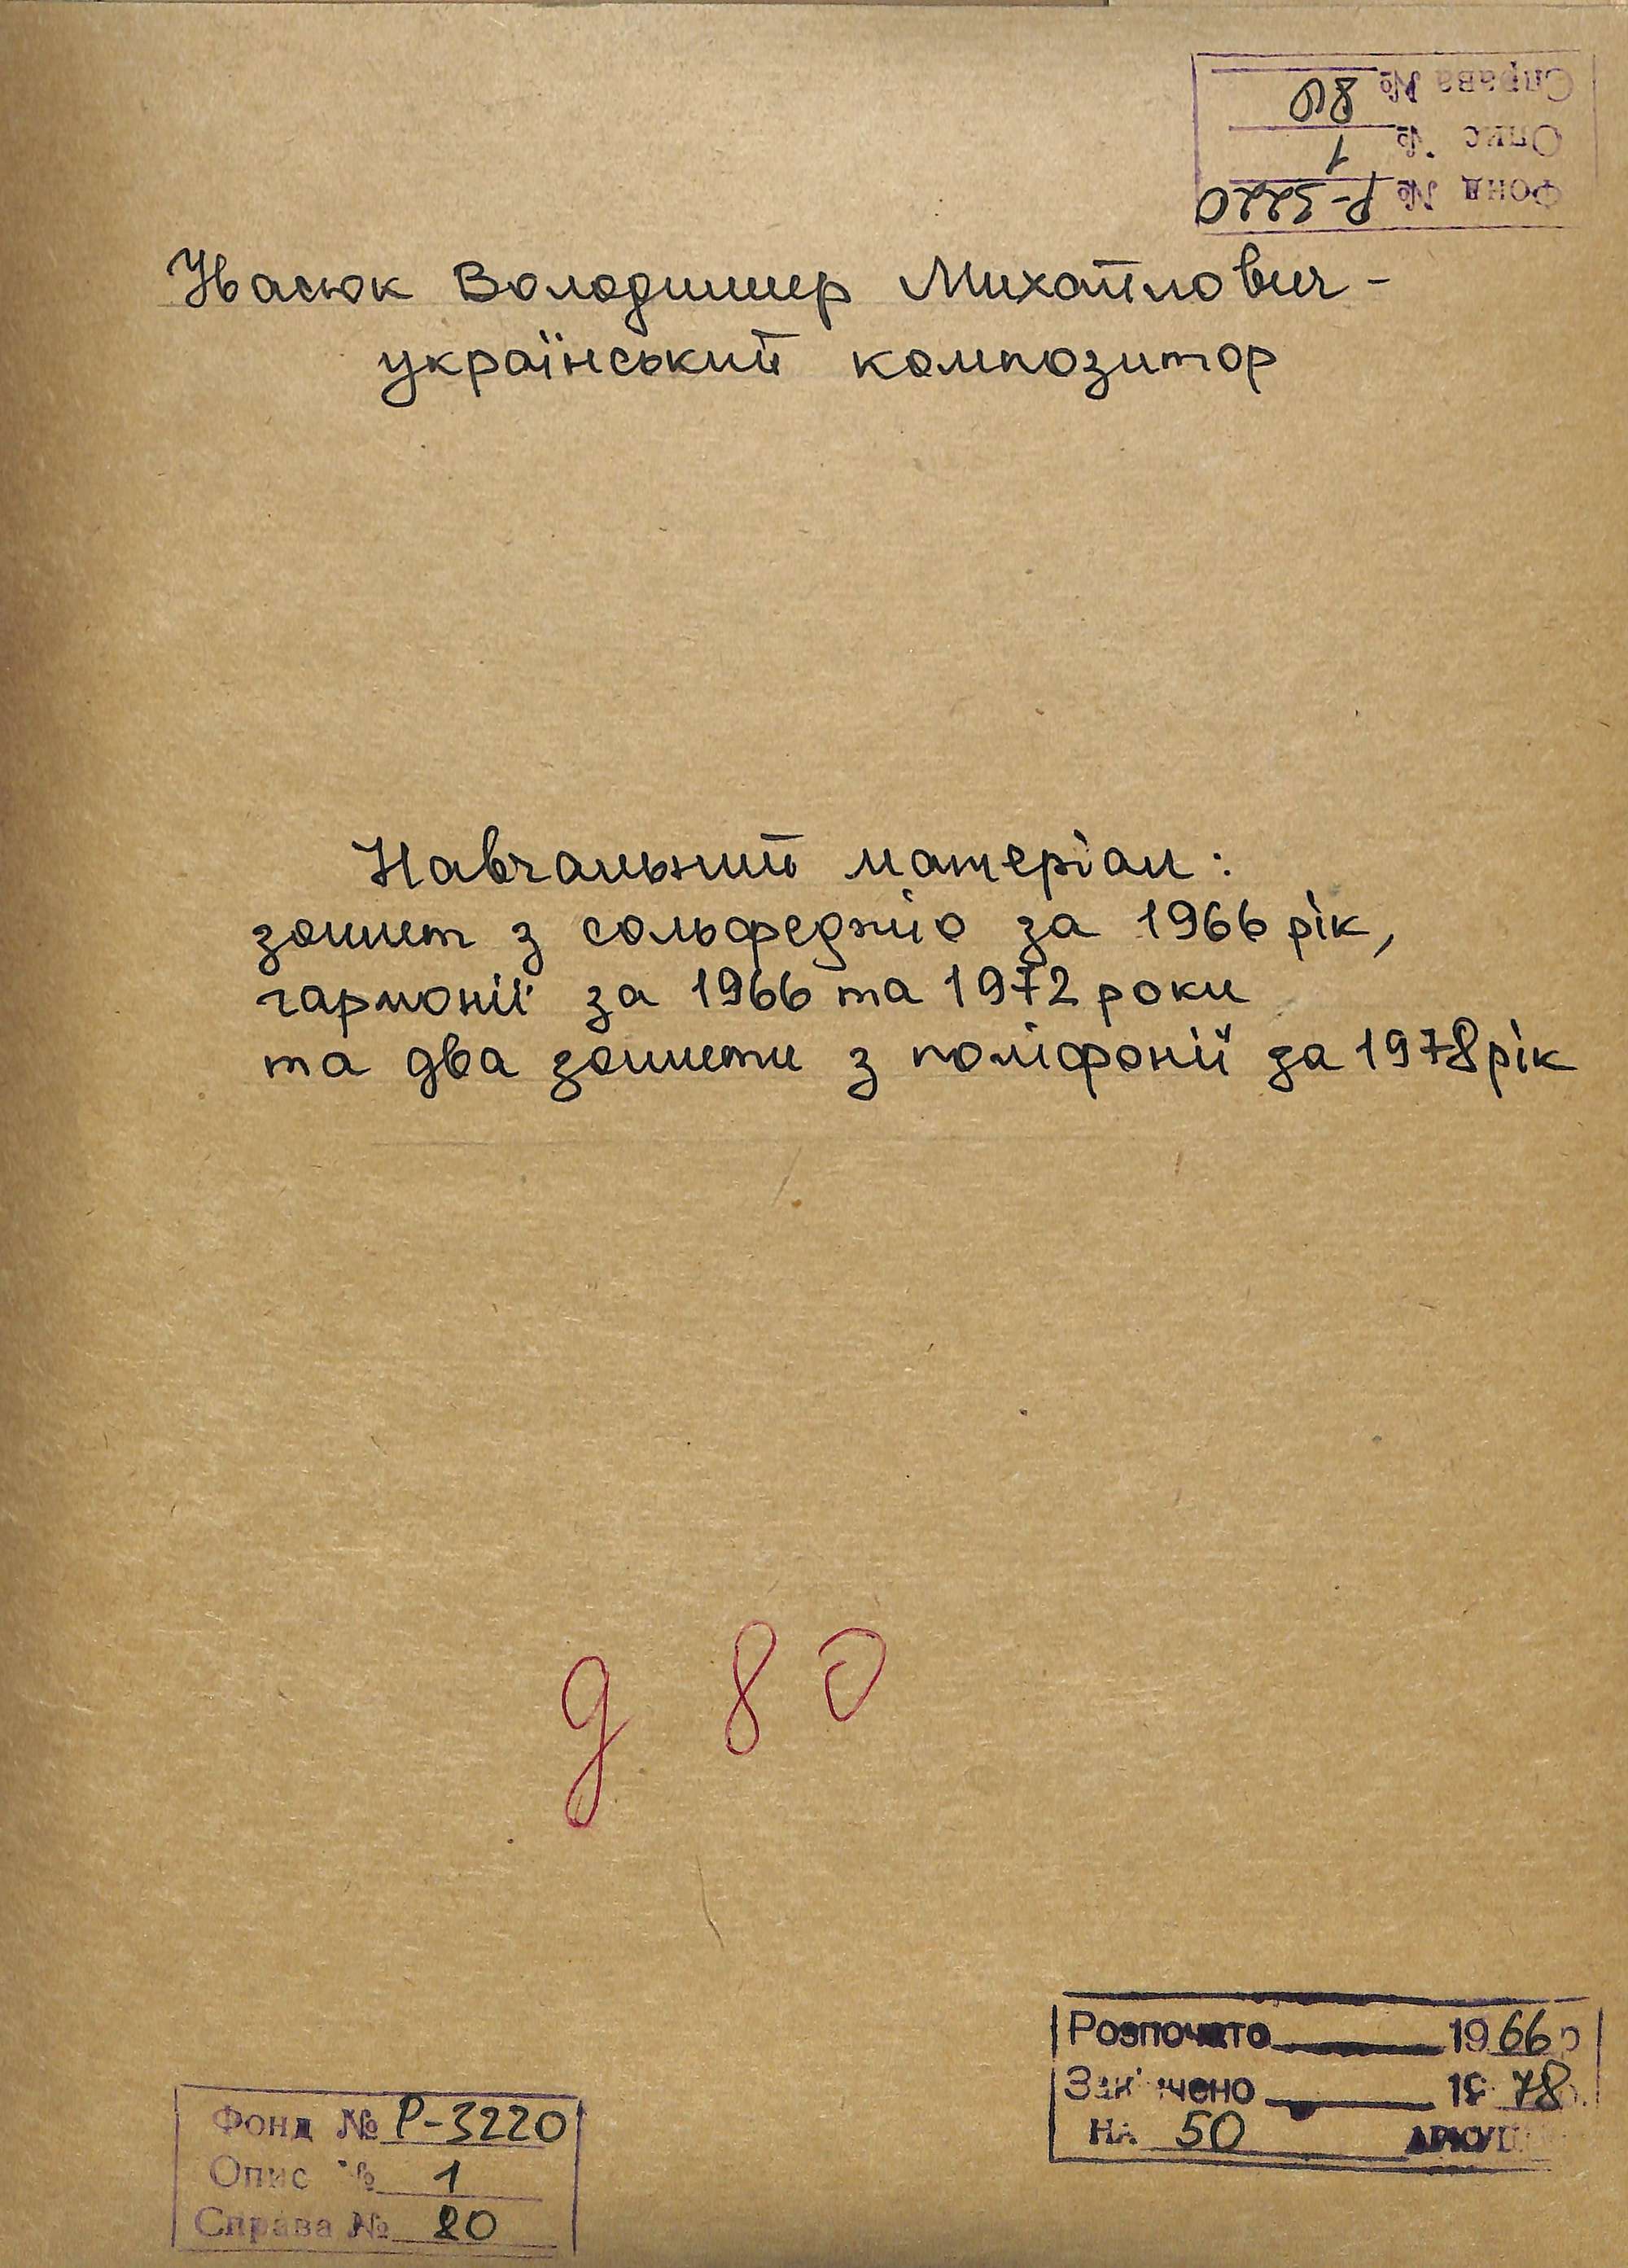 Справа № 80
Опис № 1
Фонд № Р-3220
Івасюк Володимир Михайлович -
український композитор
Навчальний матеріал:
зошит з сольфеджіо за 1966 рік,
гармонії за 1966 та 1972 роки
та два зошити з поліфонії за 1978 рік
д 80
Розпочато 1966 р
Закінчено 1978 р.
на 50 аркуш
Фонд № Р-3220
Опис № 1
Справа № 80